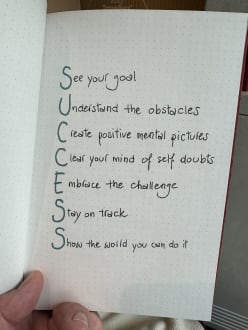 See your goal
Understand the obstacles
Create positive mental pictures
Clear your mind of self doubts
Embrace the challenge
Stay on track
Show the world you can do it